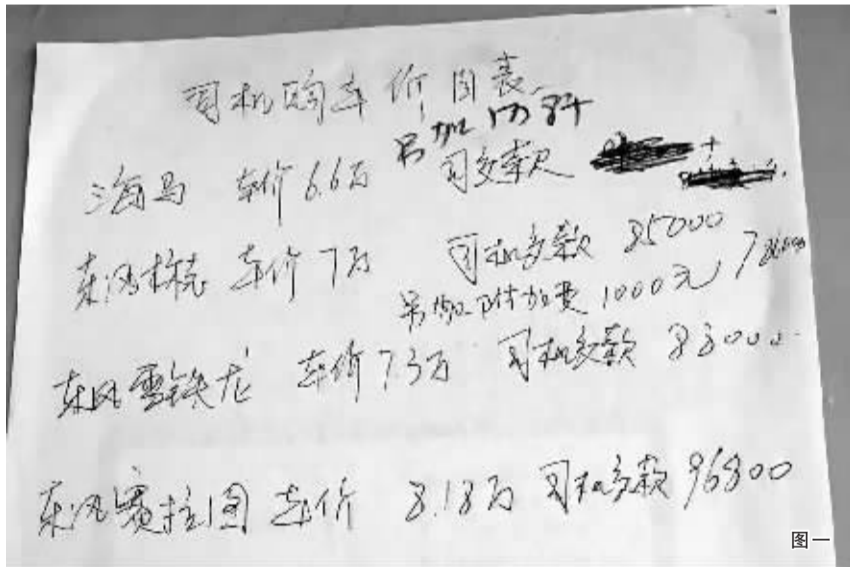 司机购车价目表
另加
海马 车价6.6万 司交款
东风标志 车价7万 司机交款 85000
另加附加费1000元
东风雪铁龙 车价7.3万 司机交款 83000
东风赛拉图 车价 8.18万 司机交款 96800
图一